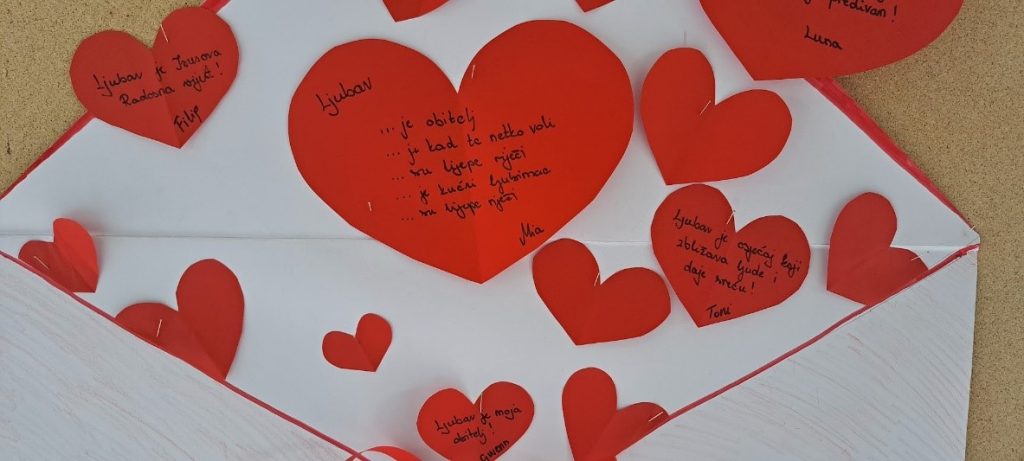 Ljubav je Isusova
Radosna vijest!
Filip
Ljubav
... je obitelj
... je kad te netko voli
... su lijepe riječi
... je kućni ljubimac
... su lijepe riječi
Mia
predivan!
Luna
Ljubav je osjećaj koji
zbližava ljude i
daje sreću!
Toni
Ljubav je moja
obitelj!